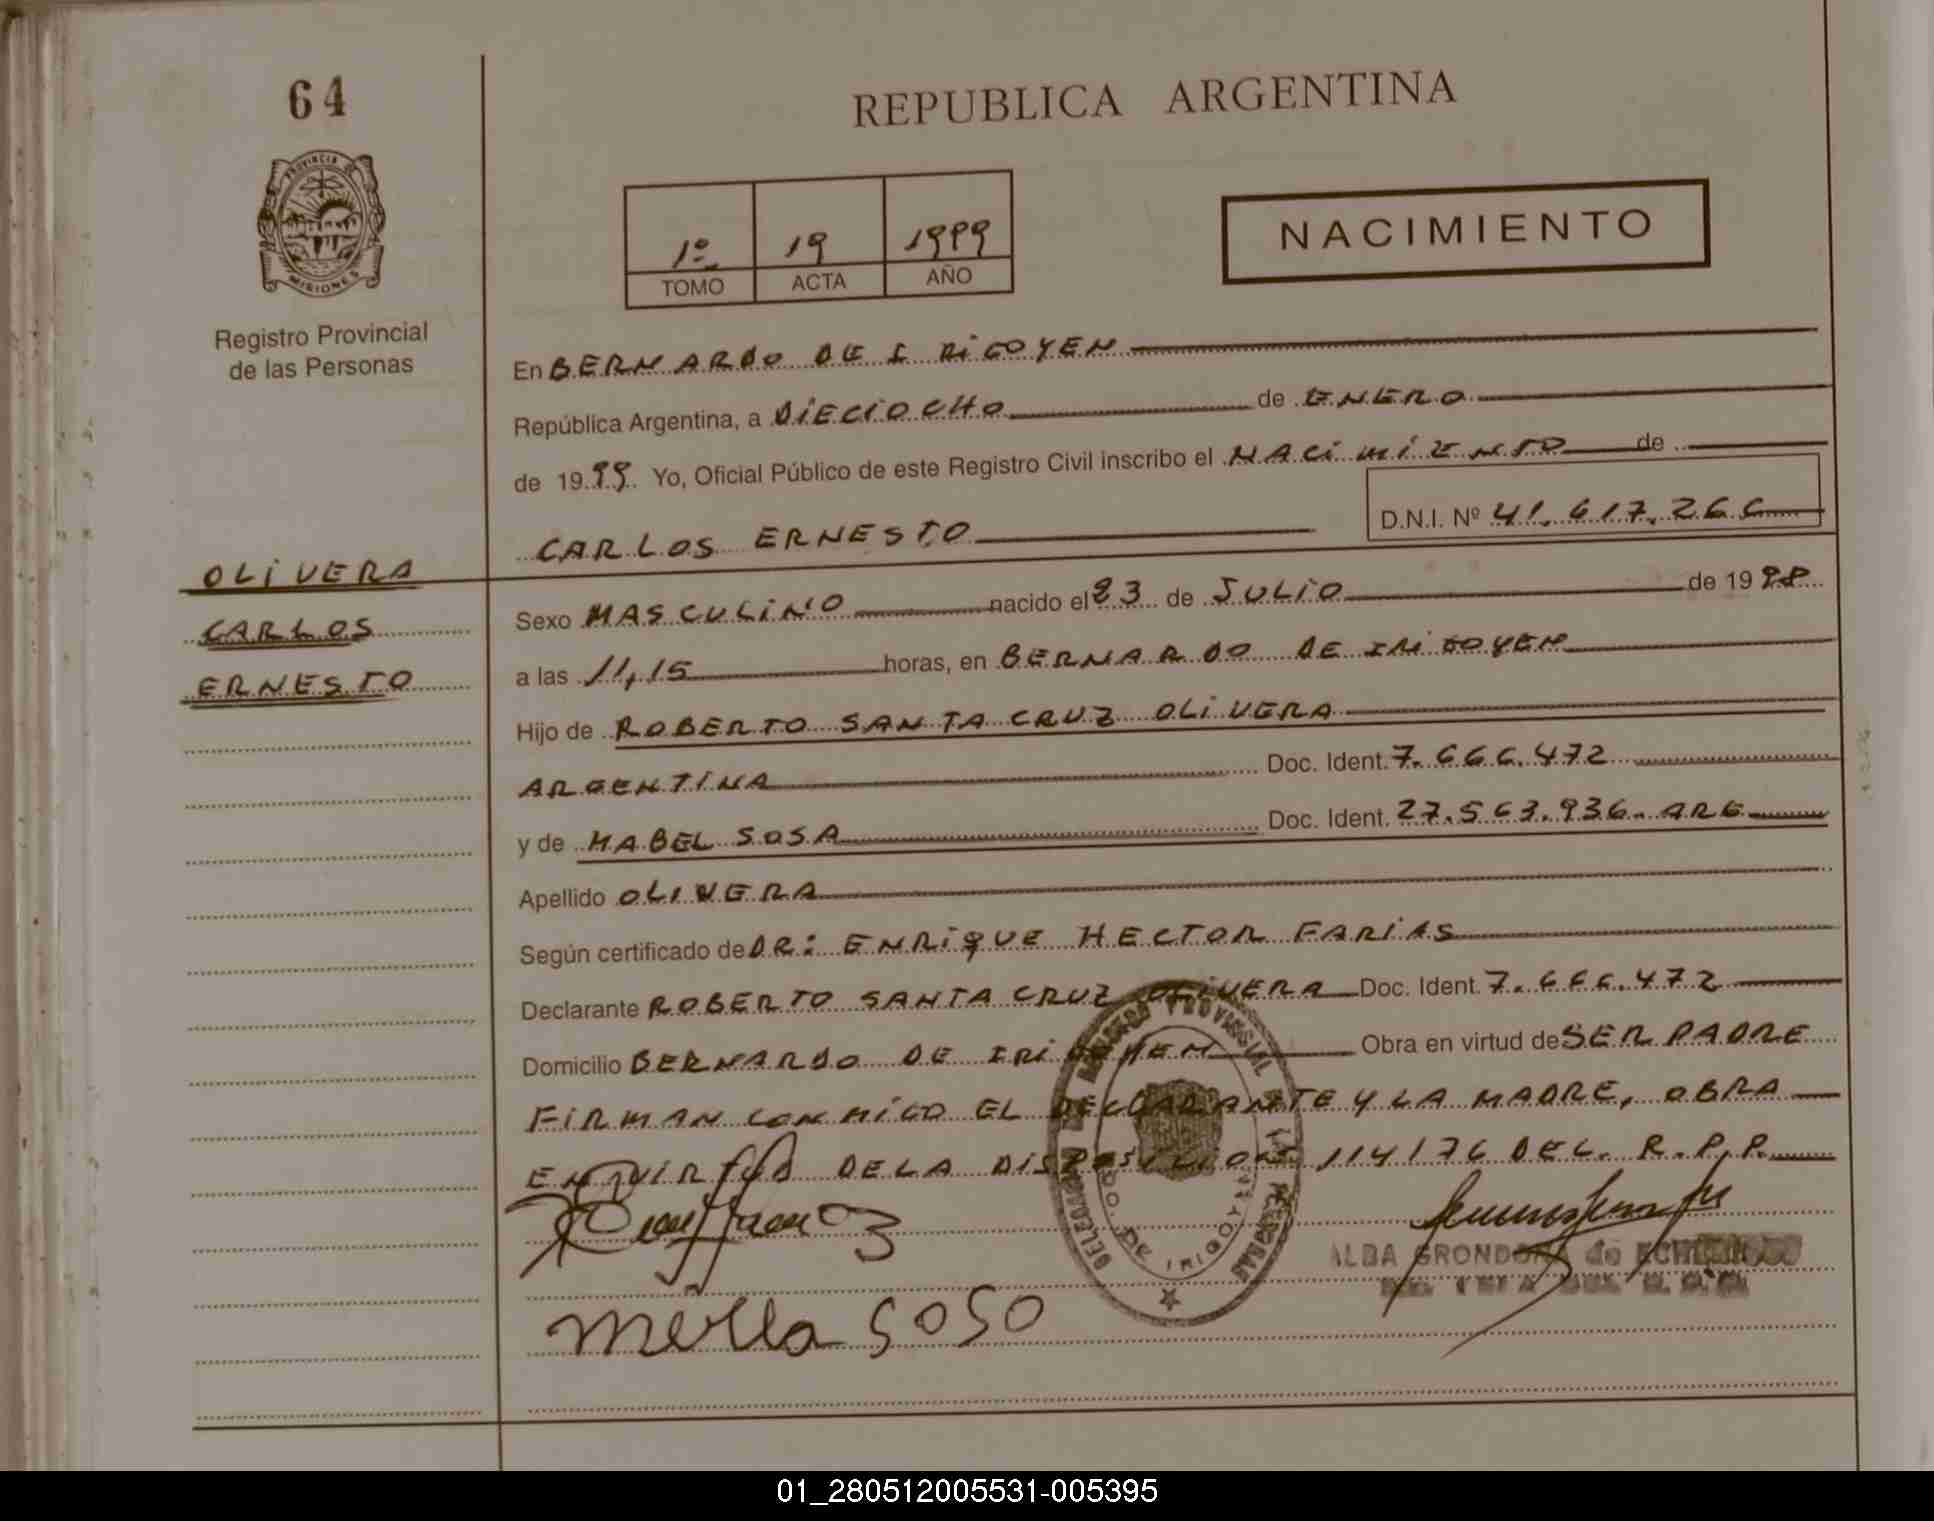 64
REPUBLICA ARGENTINA
PROVINCIA DE
MISIONES
Registro Provincial
de las Personas
1º 19 1999
TOMO ACTA AÑO
NACIMIENTO
En BERNARDO DE IRIGOYEN
República Argentina, a DIECIOCHO de ENERO
de 1999 Yo, Oficial Público de este Registro Civil inscribo el NACIMIENTO de
D.N.I. Nº 41.617.266
CARLOS ERNESTO
OLIVERA
CARLOS
ERNESTO
Sexo MASCULINO nacido el 23 de JULIO de 1998
a las 11,15 horas, en BERNARDO DE IRIGOYEN
Hijo de ROBERTO SANTA CRUZ OLIVERA
ARGENTINA Doc. Ident. 7.666.472
y de MABEL SOSA Doc. Ident. 27.563.936. ARG
Apellido OLIVERA
Según certificado de DR: ENRIQUE HECTOR FARIAS
Declarante ROBERTO SANTA CRUZ OLIVERA Doc. Ident. 7.666.472
Domicilio BERNARDO DE IRIGOYEN Obra en virtud de SER PADRE
FIRMAN CONMIGO EL DECLARANTE Y LA MADRE, OBRA
EN VIRTUD DE LA DISPOSICION 114176 DEL. R.P.P.
DE IRIGOYEN
ALBA GRONDONA de
SOSO
01_280512005531-005395